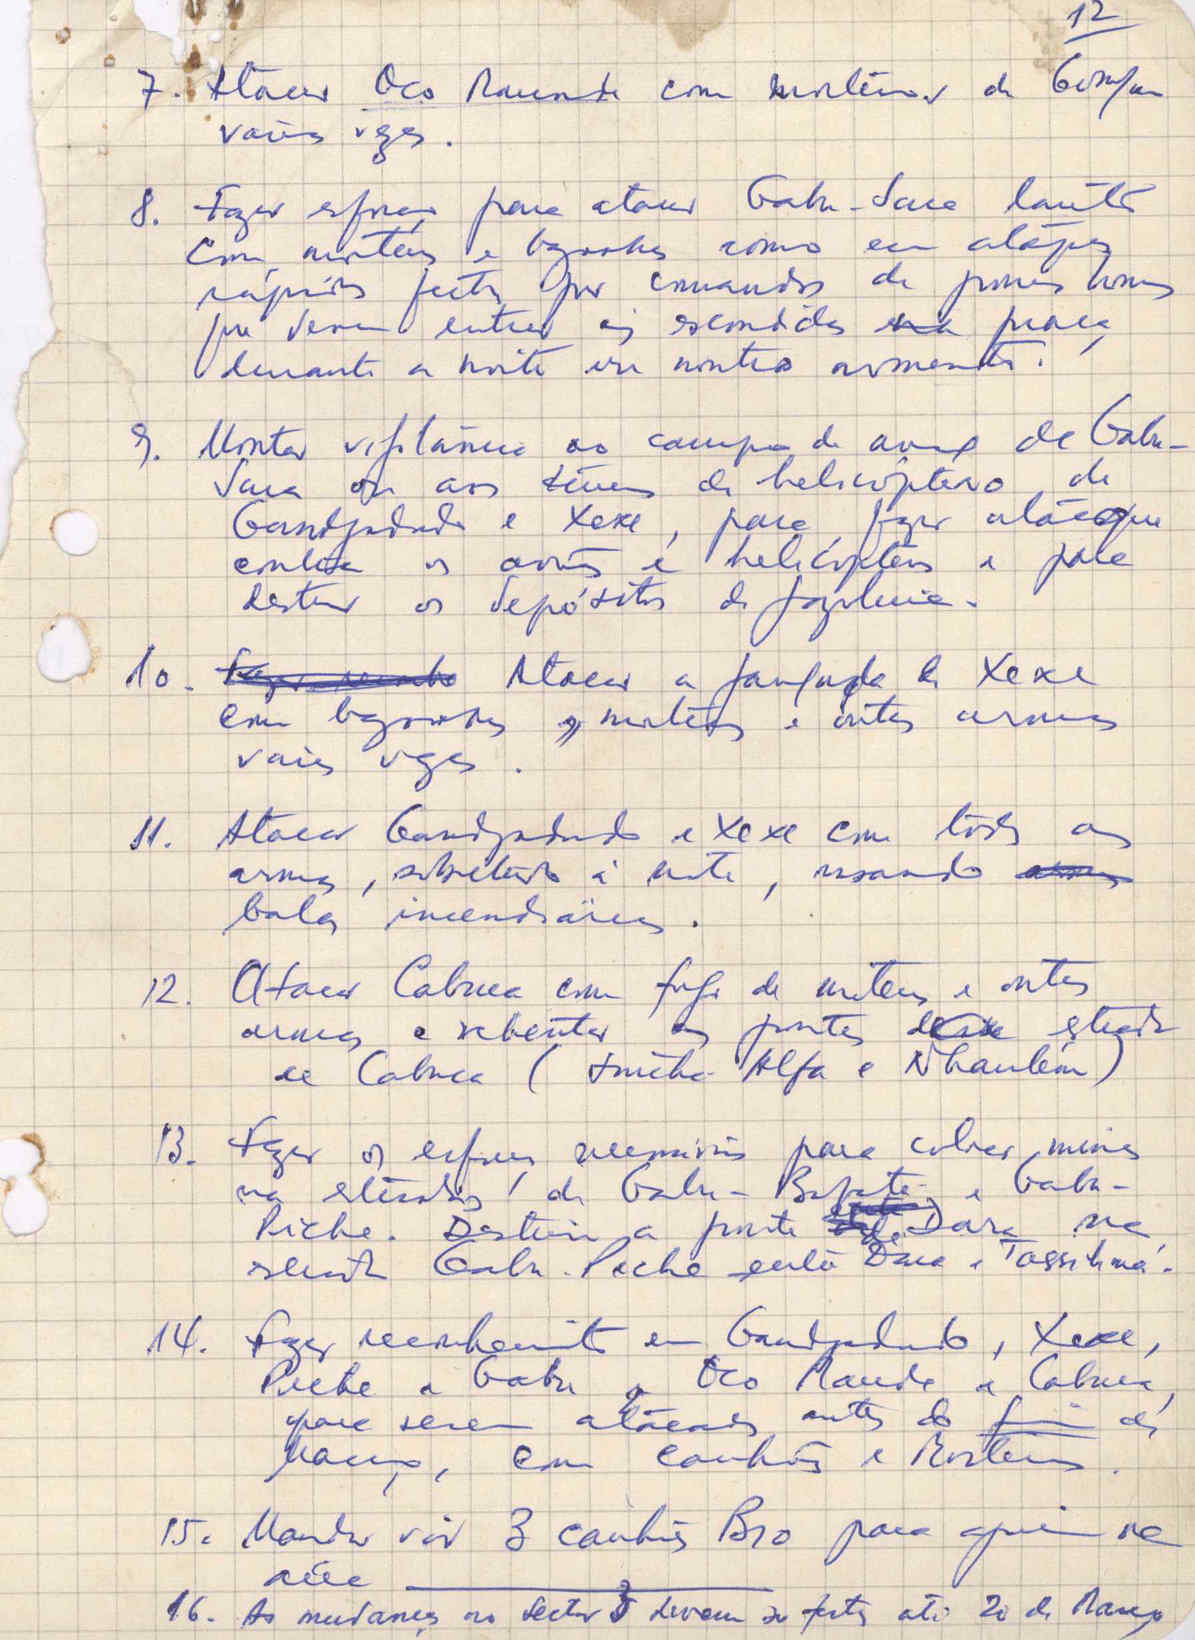 12
7. Atacar Oco Maunde com morteiros de
várias vezes.
8. Fazer esforços para atacar Gabu-Sara tanto
com morteiros e bazookas como em ataques
rápidos feitos por comandos de poucos homens
que devem entrar às escondidas na praça
durante a noite ou noutros momentos.
9. Montar vigilância ao campo de aviação de Gabu-
Sara ou aos de helicóptero de
Gandjadude e Xexe, para fazer atáeque
contra os aviões e helicópteros e para
destruir os depósitos de gazolina.
10. Atacar a jangada de Xexe
com bazookas, morteiros e outras armas
várias vezes.
11. Atacar Gandjadude e Xexe com todas as
armas, sobretudo à noite, usando
balas incendiárias.
12. Atacar Cabuca com fogo de morteiros e outras
armas e rebentar as pontes estrada
de Cabuca ( Alfa e Nhaulém)
13. Fazer os esforços necessários para colocar minas
na estradas de Gabu- Bafatá e Gabu-
Piche. Destruir a ponte de Dara na
estrada Gabu-Piche entre Dara e Tassilima.
14. Fazer reconhecimento em Gandjadude, Xexe,
Piche e Gabu e Oco Maunde e Cabuca,
para serem atacados antes do fim de
Março, com canhões e Morteiros.
15. Mandar vir 3 canhões B10 para aqui na
área
16. As mudanças no Sector 3 devem ser feitas até 20 de Março